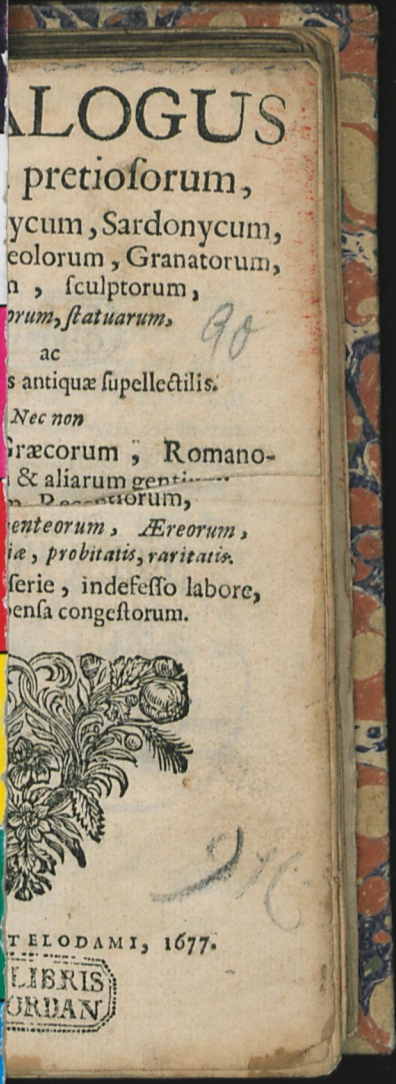 ALOGUS
pretioſorum,
ycum, Sardonycum,
eolorum, Granatorum,
n, ſculptorum,
orum, ſtatuarum,
90
ac
s antiquæ ſupellectilis.
Nec non
Græcorum, Romano-
& aliarum
tiorum,
enteorum, Æreorum,
iæ, probitatis, raritatis.
ſerie, indefeſſo labore,
penſa congeſtorum.
TELODAMI, 1677.
LIBRIS
ORDAN